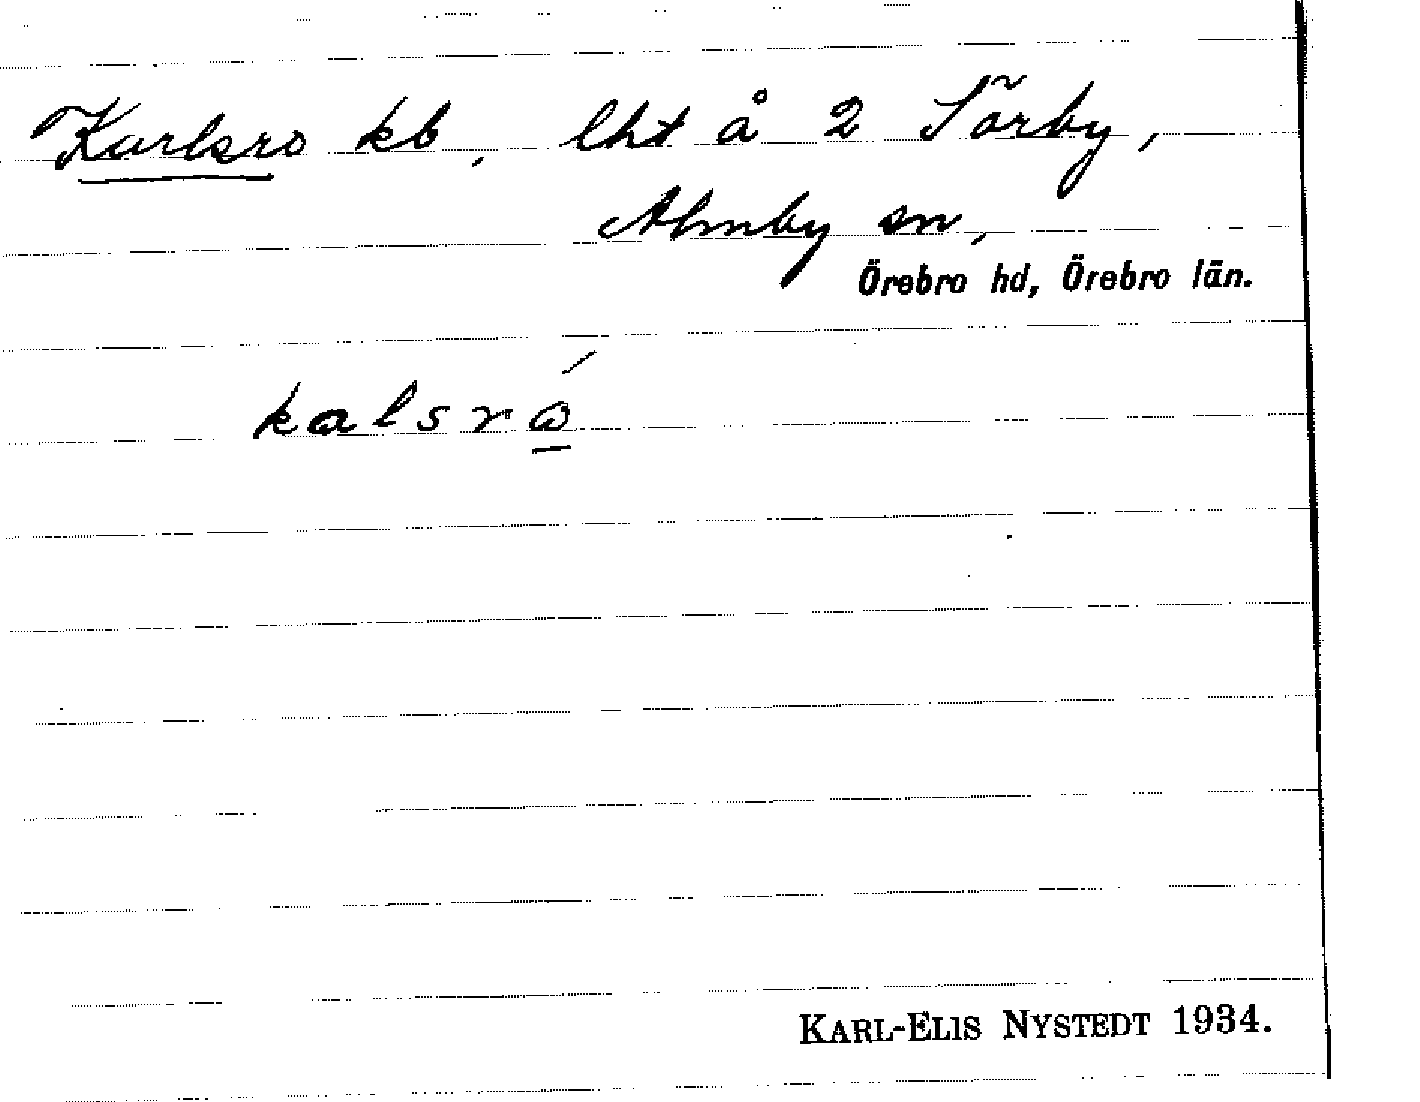 Karlsro kb, lht å 2 Sörby,
Almby sn,
Örebro hd, Örebro län.
kalsrώ̲
KARL-ELIS NYSTEDT 1934.